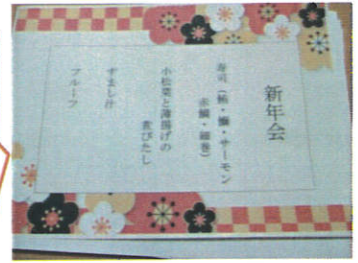 新年会
寿司（鮪・鰤・サーモン
赤鯛・細巻）
小松菜と薄揚げの
煮びたし
すまし汁
フルーツ